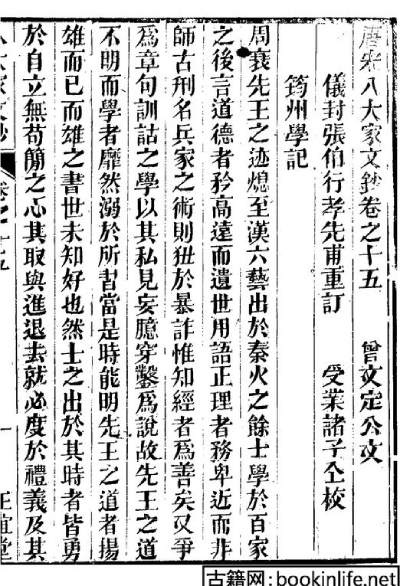 唐宋八大家文鈔卷之十五 曾文定公文
儀封張伯行孝先甫重訂 受業諸子仝校
筠州學記
周衰先王之迹熄至漢六藝出於秦火之餘士學於百家
之後言道德者矜高遠而遺世用語正理者務卑近而非
師古刑名兵家之術則狃於暴詐惟知經者為善矣又爭
為章句訓詁之學以其私見妄臆穿鑿為說故先王之道
不明而學者靡然溺於所習當是時能明先王之道者揚
雄而已而雄之書世未知好也然士之出於其時者皆勇
於自立無苟簡之心其取與進退去就必度於禮義及其
八大家文鈔 卷之十五 一 正誼堂
古籍网:bookinlife.net